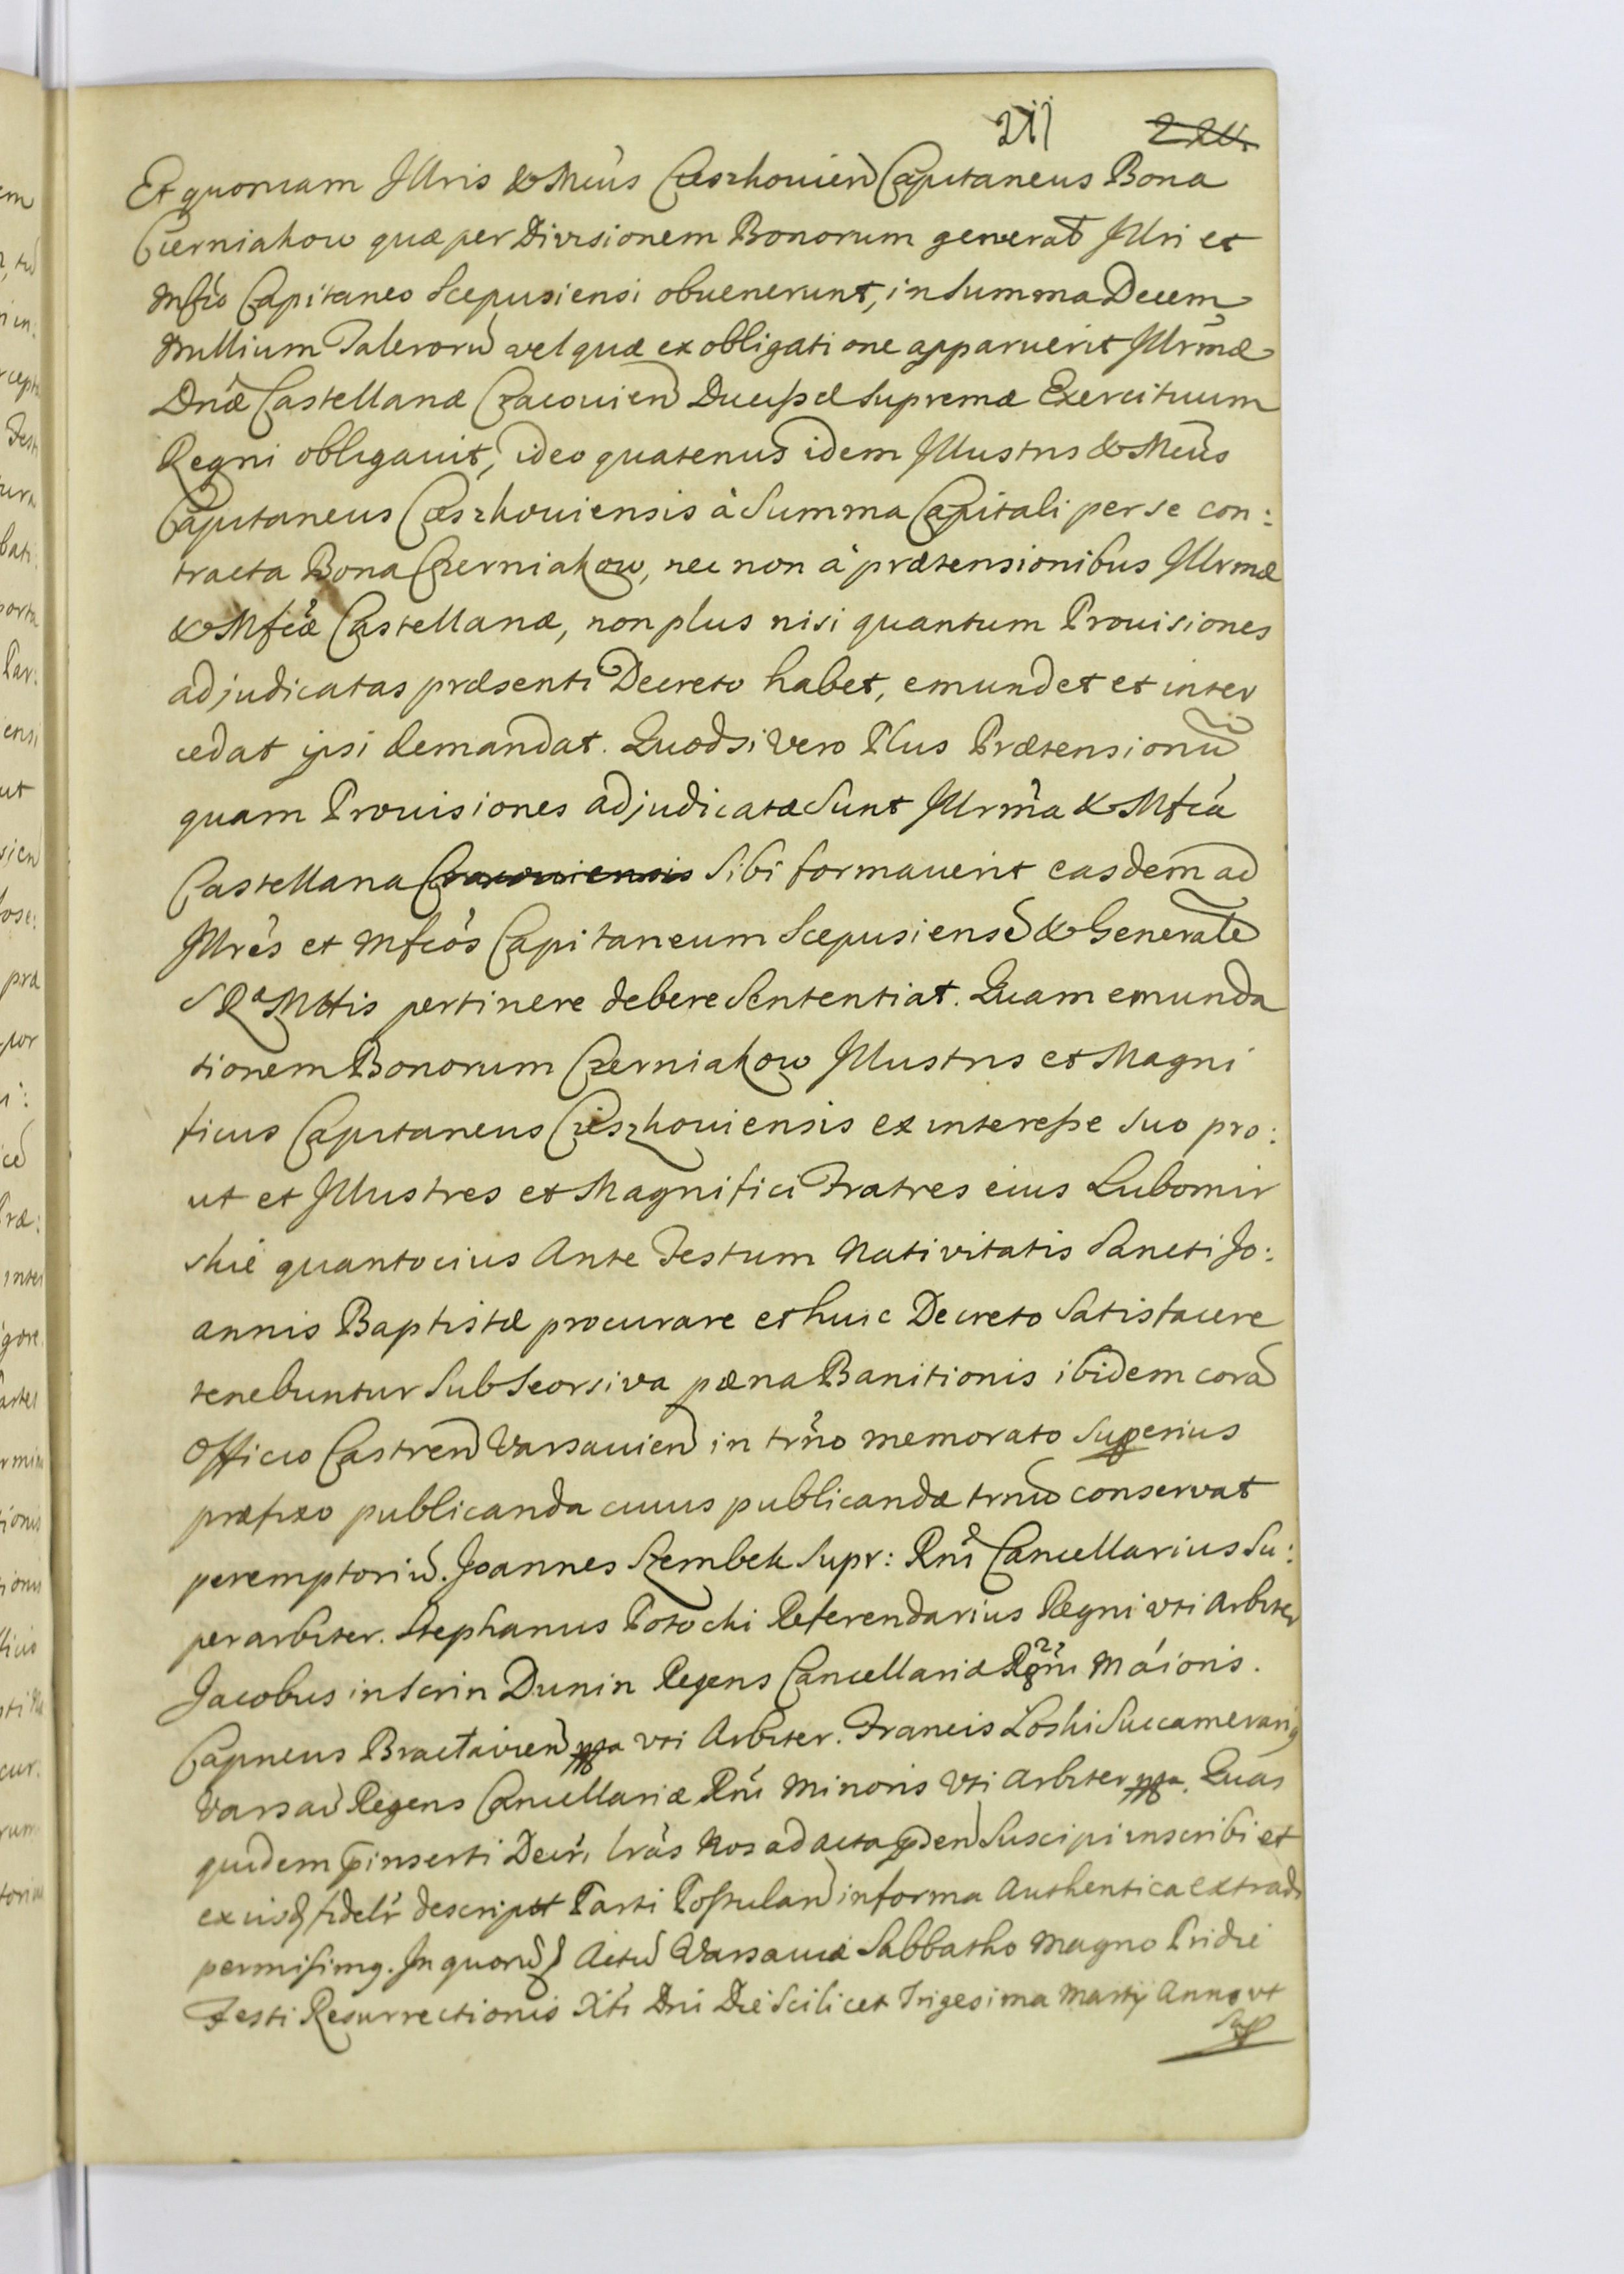 211
Et quoniam Illris & Mcus Cieszkovien Capitaneus Bona
Czerniakow quæ per Divisionem Bonorum generat Illri et
Mfico Capitaneo Scepusiensi obvenerunt, in Summa Decem
Millium Talerorũ vel quæ ex obligatione apparuerit Illrmæ
Dnæ Castellanæ Cracovien Ducissæ Supremæ Exercituum
Regni obligavit, ideo quatenus idem Illustris & Mcus
Capitaneus Cieszkoviensis à Summa Capitali per se con:
tracta Bona Czerniakow, nec non à prætensionibus Illrmæ
& Mfcæ Castellanæ, non plus nisi quantum Provisiones
adjudicatas præsenti Decreto habet, emundet et inter
cedat ipsi demandat. Quodsi vero Plus Prætensionũ
quam Provisiones adjudicatæ Sunt Illrma & Mfca
Castellana Cracoviensis Sibi formaverit easdem ad
Illres et Mfcos Capitaneum Scepusiensẽ & Generalẽ
S Ra Mttis pertinere debere Sententiat. Quam emunda
tionem Bonorum Czerniakow Illustris et Magni
ficus Capitaneus Cieszkoviensis ex interesse Suo pro:
ut et Illustres et Magnifici Fratres eius Lubomir
skie quantocius Ante Festum Nativitatis Sancti Jo:
annis Baptistæ procurare et huic Decreto Satisfacere
tenebuntur Sub Seorsiva pæna Banitionis ibidem corã
Officio Castren Varsavien in trño memorato Superius
præfixo publicanda cuius publicandæ trnũ conservat
peremptoriũ. Joannes Szembek Supr: Rni Cancellarius Su:
perarbiter. Stephanus Potocki Referendarius Regni uti Arbiter
Jacobus in Scrin Dunin Regens Cancellariæ Rgni Maioris.
Capneus Braclavien mpa uti Arbiter. Francis Loski Succamerarius
Varsav Regens Cancellariæ Rni Minoris Uti Arbiter mpa. Quas
quidem pinserti Decri lras Nos ad acta pñ Suscipi inscribi et
ex iisdem fidelr descriptt Parti Postulan in forma Authentica extradi
permisimus. In quorũ Actũ Varsaviæ Sabbatho Magno Pridie
Festi Resurrectionis Xti Dni Die Scilicet Trigesima Martij Anno ut
Sup